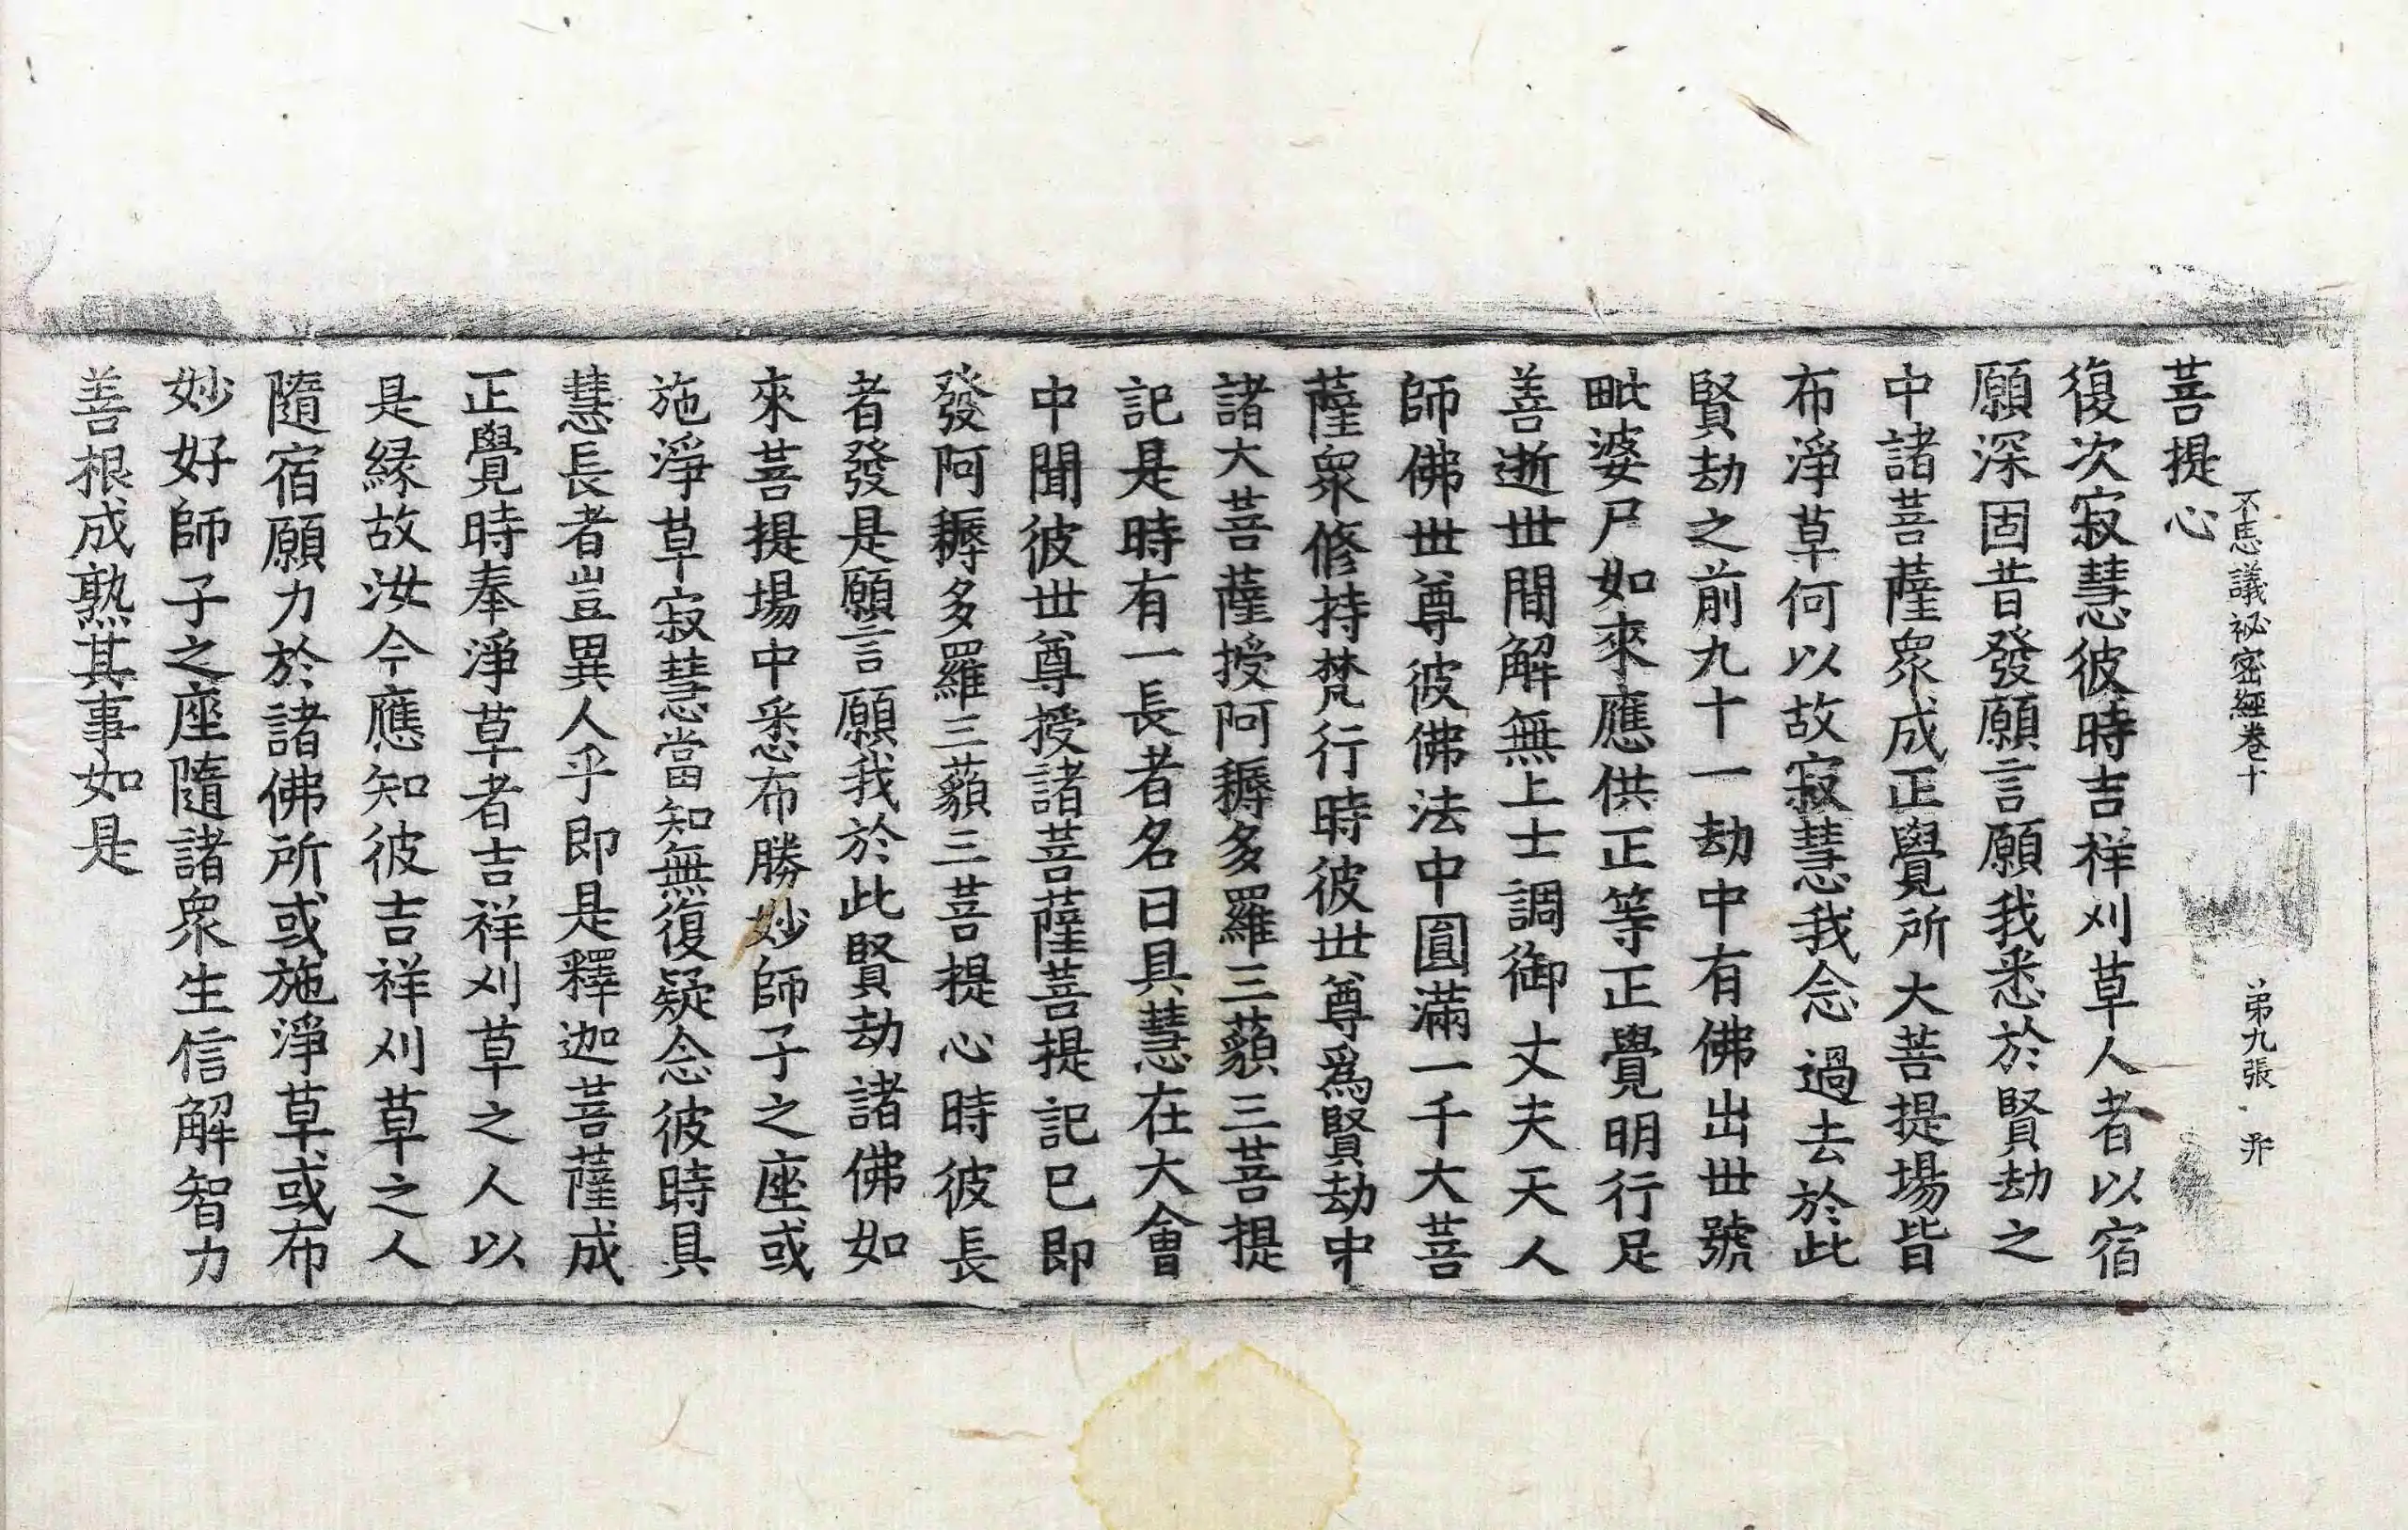 不思議祕密經卷十 第九張 𢆉
菩提心
復次寂慧彼時吉祥刈草人者以宿
願深固昔發願言願我悉於賢劫之
中諸菩薩衆成正覺所大菩提場皆
布淨草何以故寂慧我念過去於此
賢劫之前九十一劫中有佛出世號
毗婆尸如來應供正等正覺明行足
善逝世間解無上士調御丈夫天人
師佛世尊彼佛法中圓滿一千大菩
薩衆修持梵行時彼世尊爲賢劫中
諸大菩薩授阿耨多羅三藐三菩提
記是時有一長者名曰具慧在大會
中聞彼世尊授諸菩薩菩提記已即
發阿耨多羅三藐三菩提心時彼長
者發是願言願我於此賢劫諸佛如
來菩提場中悉布勝妙師子之座或
施淨草寂慧當知無復疑念彼時具
慧長者豈異人乎即是釋迦菩薩成
正覺時奉淨草者吉祥刈草之人以
是緣故汝今應知彼吉祥刈草之人
隨宿願力於諸佛所或施淨草或布
妙好師子之座隨諸衆生信解智力
善根成熟其事如是